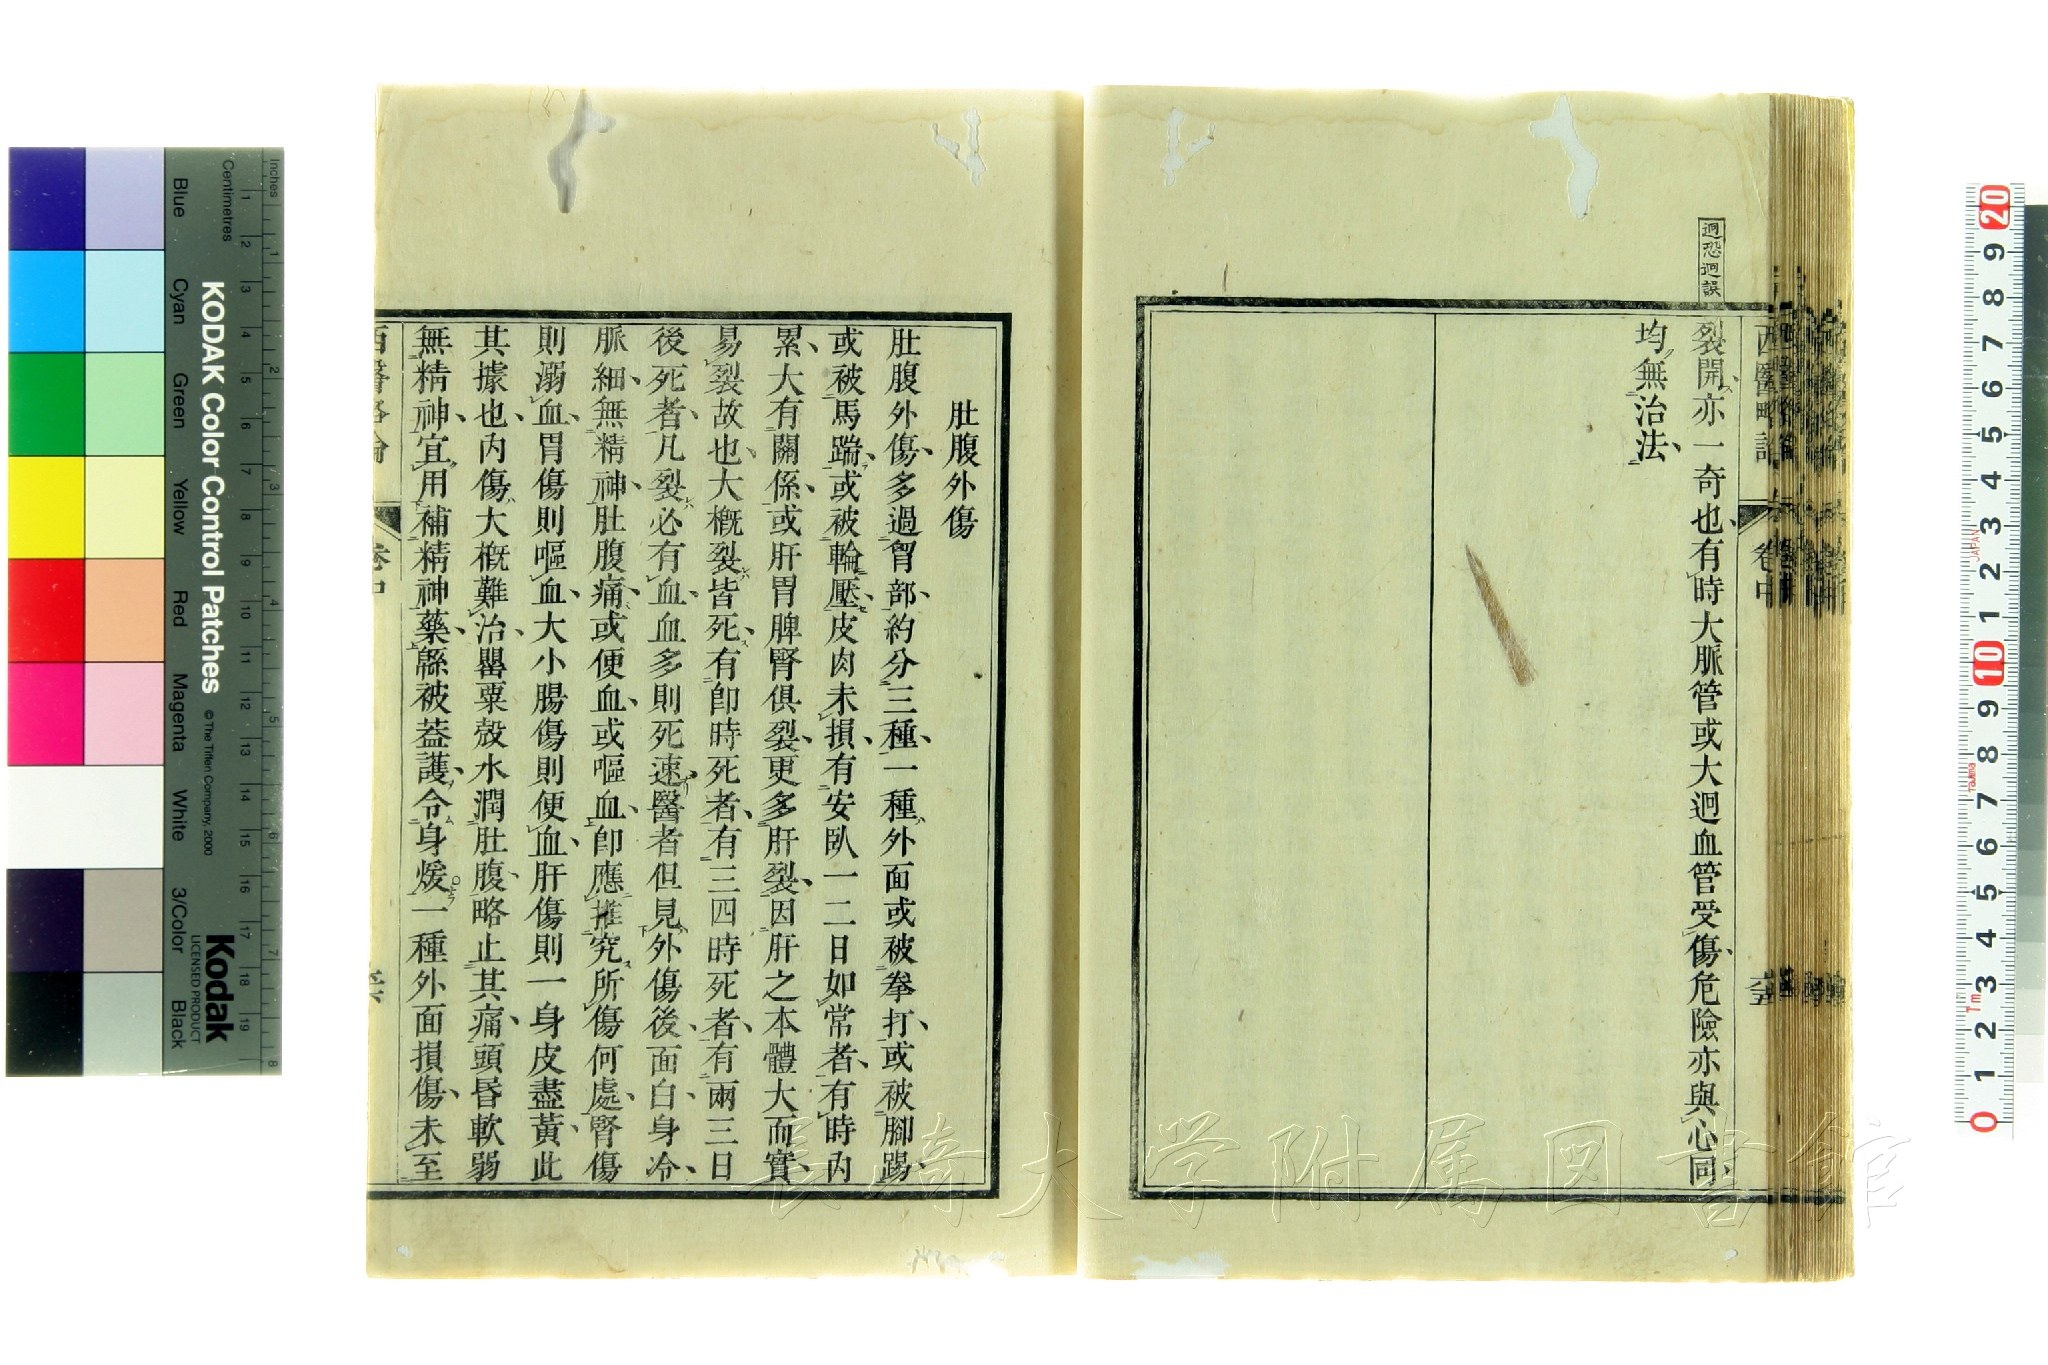 迥恐迴誤
西醫略論
卷中
裂開亦一奇也有時大脈管或大迴血管受傷危險亦與心同
均無治法
肚腹外傷
肚腹外傷多過胷部約分三種一種外面或被拳打或被腳踢
或被馬踹或被輪壓皮肉未損有安臥一二日如常者有時內
累大有關係或肝胃脾腎俱裂更多肝裂因肝之本體大而實
易裂故也大槪裂皆死有卽時死者有三四時死者有兩三日
後死者凡裂必有血血多則死速醫者但見外傷後面白身冷
脈細無精神肚腹痛或便血或嘔血卽應推究所傷何處腎傷
則溺血胃傷則嘔血大小腸傷則便血肝傷則一身皮盡黃此
其據也內傷大槪難治罌粟殼水潤肚腹略止其痛頭昏軟弱
無精神宜用補精神藥緜被葢護令身煖一種外面損傷未至
西醫略論
卷中
KODAK Color Control Patches
© The Tiffen Company, 2000
Kodak
LICENSED PRODUCT
Inches
Centimetres
Blue
Cyan
Green
Yellow
Red
Magenta
White
3/Color
Black
長崎大学附属図書館